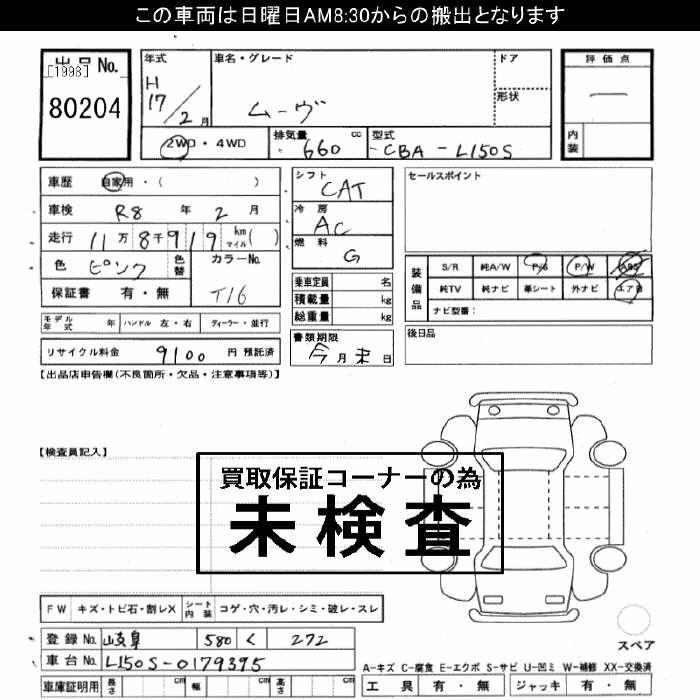 この車両は日曜日AM8:30からの搬出となります
出品No.
[1998]
80204
年式
H
17/2月
車名・グレード
ムーヴ
ドア
形状
2WD・4WD
排気量
660 cc
型式
CBA-L150S
評価点
内装
車歴 自家用・( )
車検 R8年2月
走行 11万8千919 km マイル( )
色 ピンク 色替
カラーNo.
T16
保証書 有・無
シフト
CAT
冷房
AC
燃料
G
乗車定員 名
積載量 kg
総重量 kg
書類期限
今月末日
セールスポイント
装備品
S/R 純A/W P/S P/W ABS
純TV 純ナビ 革シート 外ナビ エアB
ナビ型番:
後日品
モデル年式 年 ハンドル 左・右 ディーラー・並行
リサイクル料金 9100 円 預託済
【出品店申告欄(不良箇所・欠品・注意事項等)】
【検査員記入】
買取保証コーナーの為
未検査
FW キズ・トビ石・割レX シート内装 コゲ・穴・汚レ・シミ・破レ・スレ
登録No. 岐阜 580 く 272
車台No. L150S-0179395
車庫証明用 長さ cm 幅 cm 高さ cm
スペア
A-キズ C-腐食 E-エクボ S-サビ U-凹ミ W-補修 XX-交換済
工具 有・無 ジャッキ 有・無